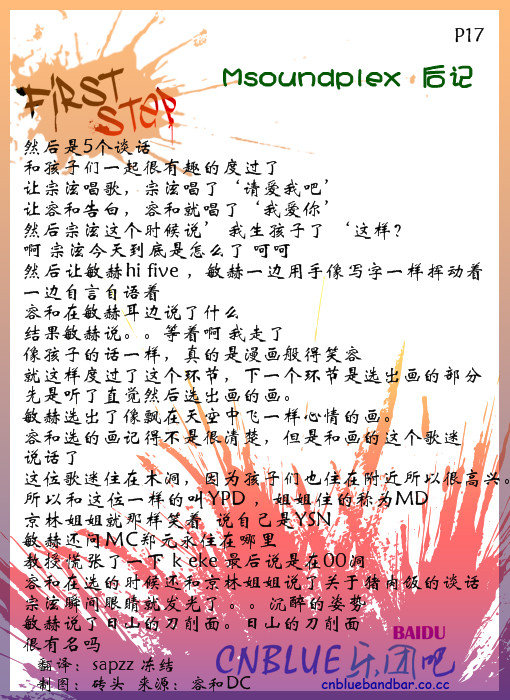 P17
FIRST STEP
Msoundplex 后记
然后是5个谈话
和孩子们一起很有趣的度过了
让宗泫唱歌，宗泫唱了‘请爱我吧’
让容和告白，容和就唱了‘我爱你’
然后宗泫这个时候说’ 我生孩子了 ‘这样?
啊 宗泫今天到底是怎么了 呵呵
然后让敏赫hi five ，敏赫一边用手像写字一样挥动着
一边自言自语着
容和在敏赫耳边说了什么
结果敏赫说。。等着啊 我走了
像孩子的话一样，真的是漫画般得笑容
就这样度过了这个环节，下一个环节是选出画的部分
先是听了直觉然后选出画的画。
敏赫选出了像飘在天空中飞一样心情的画。
容和选的画记得不是很清楚，但是和画的这个歌迷
说话了
这位歌迷住在木洞，因为孩子们也住在附近所以很高兴。
所以和这位一样的叫YPD ，姐姐住的称为MD
京林姐姐就那样笑着 说自己是YSN
敏赫还问MC郑元永住在哪里
教授慌张了一下 k eke 最后说是在00洞
容和在选的时候还和京林姐姐说了关于猪肉饭的谈话
宗泫瞬间眼睛就发光了。。沉醉的姿势
敏赫说了日山的刀削面。日山的刀削面
很有名吗
翻译：sapzz 冻结
制图：砖头 来源：容和DC
BAIDU
CNBLUE乐团吧
cnbluebandbar.co.cc